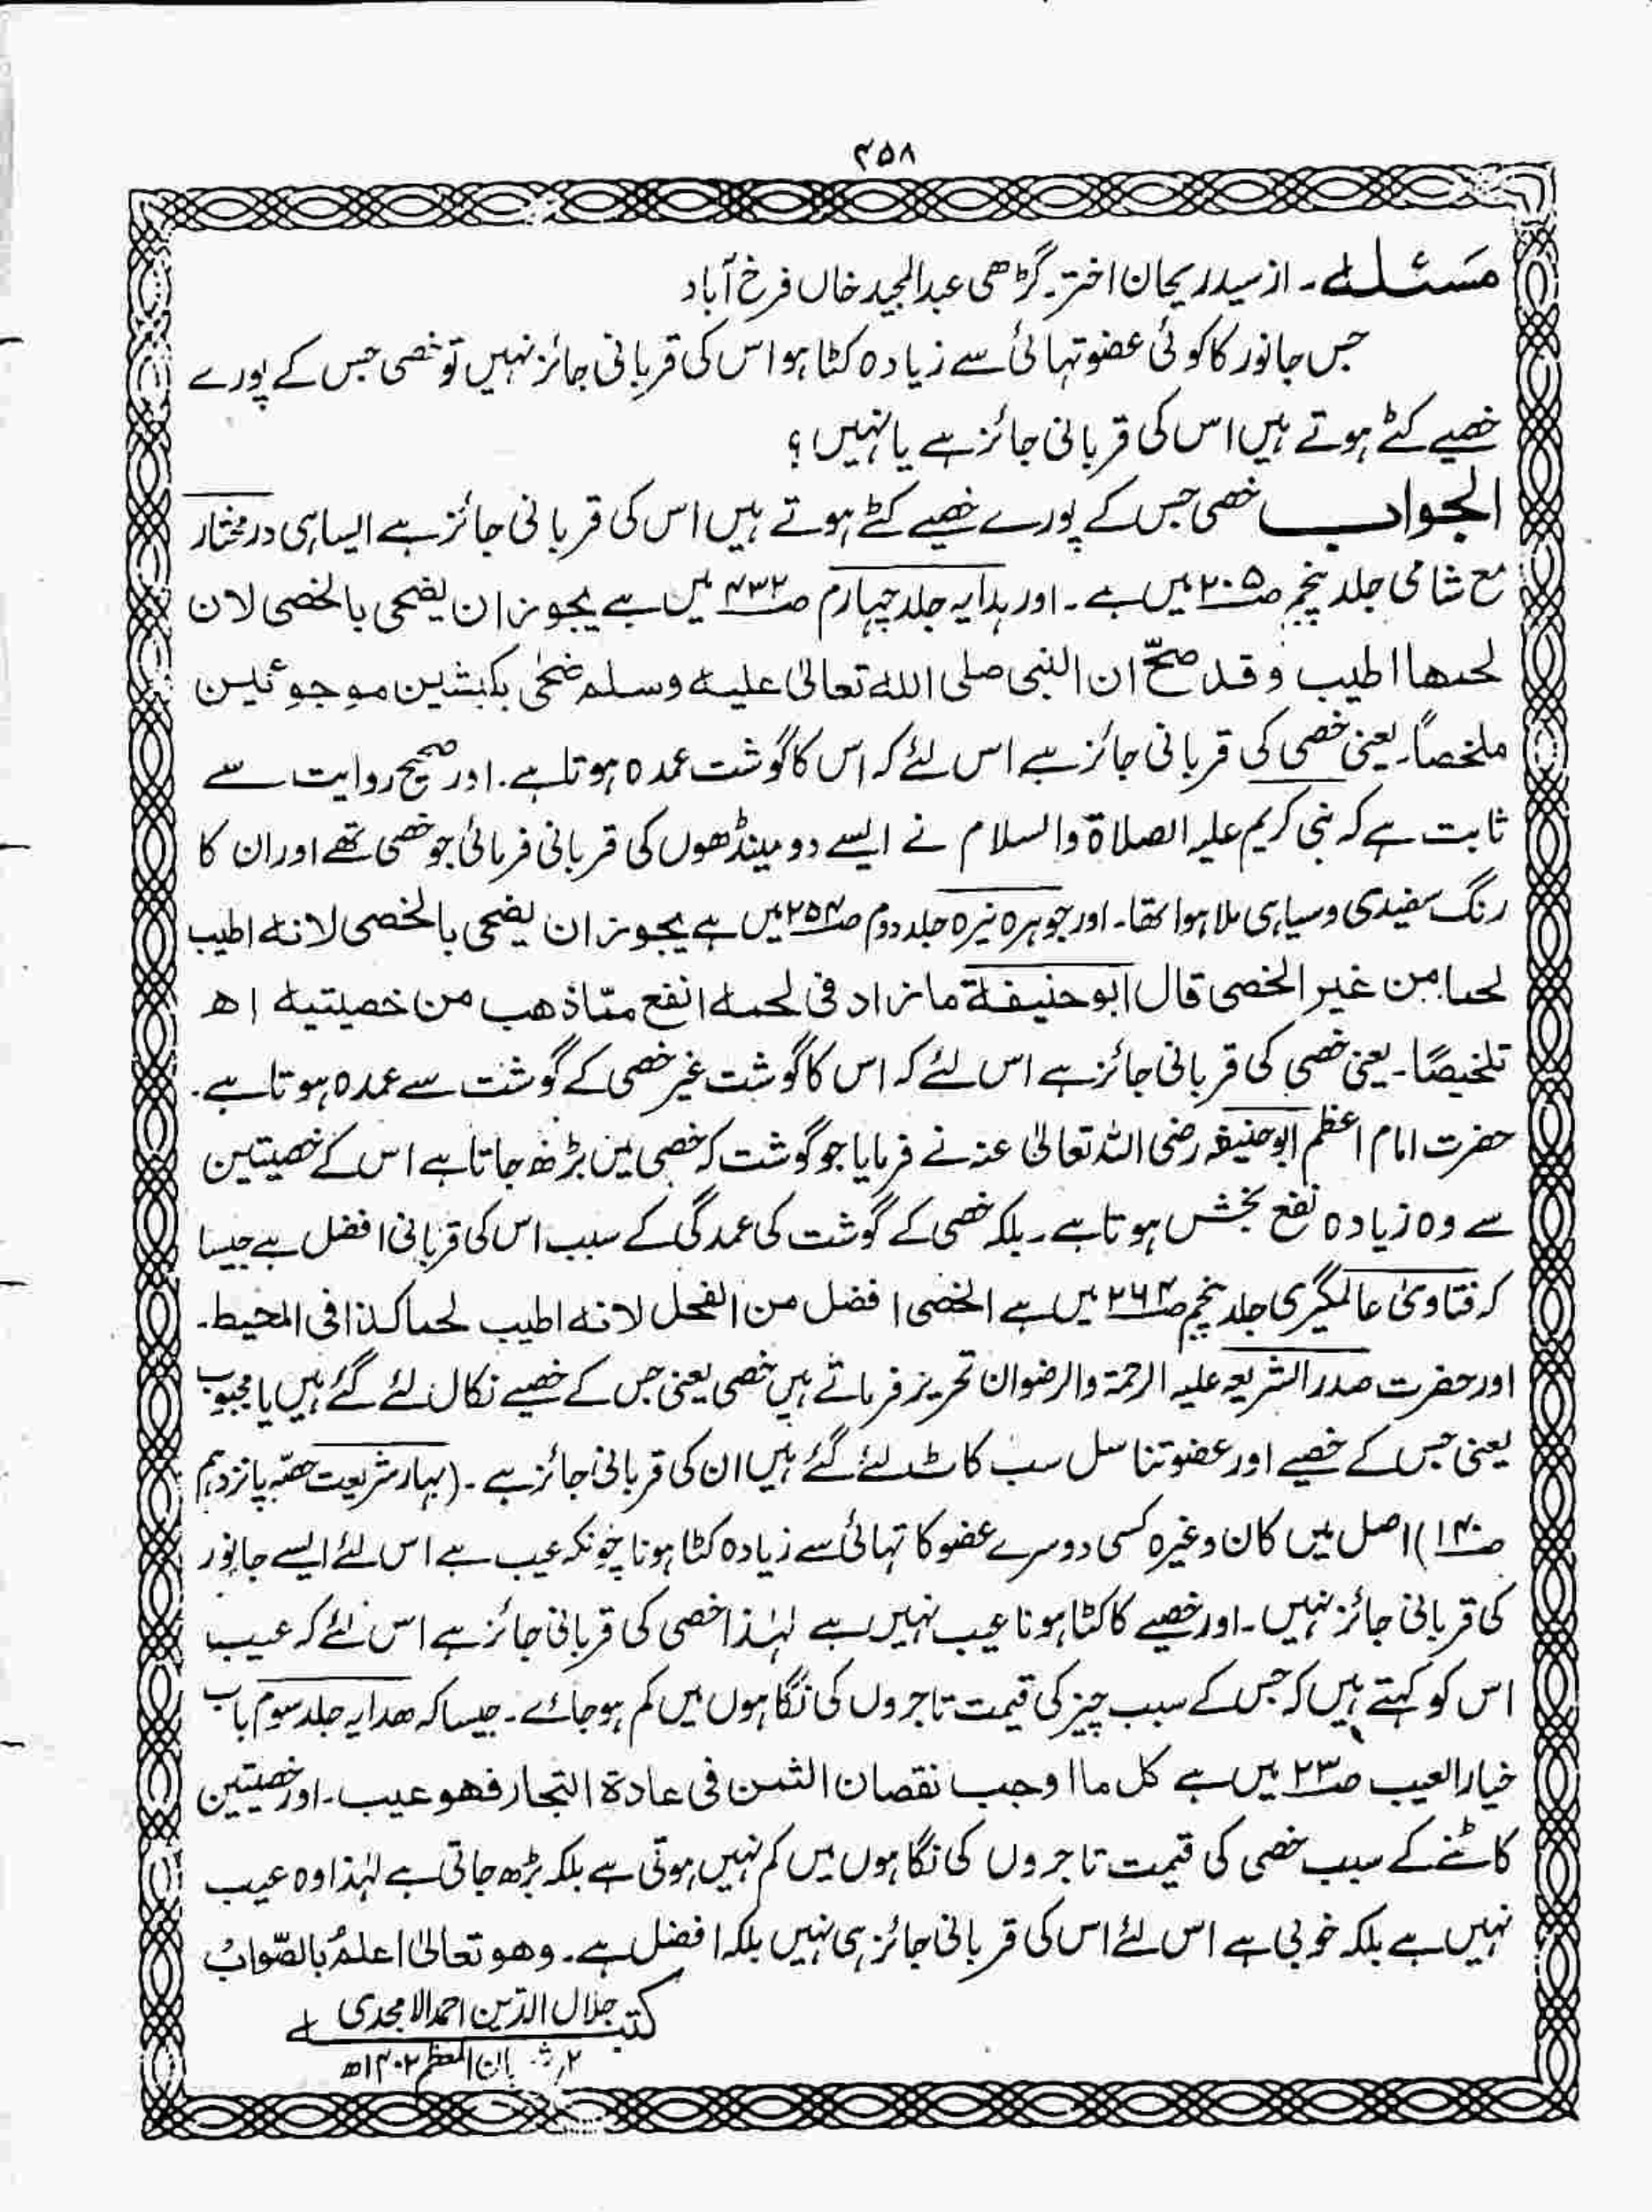 ۴۵۸
مَسئلہ۔ از سید ریحان اختر۔ گڑھی عبدالمجید خاں فرخ آباد
جس جانور کا کوئی عضو تہائی سے زیادہ کٹا ہو اس کی قربانی جائز نہیں تو خصی جس کے پورے
خصیے کٹے ہوتے ہیں اس کی قربانی جائز ہے یا نہیں؟
الجواب خصی جس کے پورے خصیے کٹے ہوتے ہیں اس کی قربانی جائز ہے ایسا ہی درمختار
مع شامی جلد پنجم ص۲۰۵ میں ہے۔ اور ہدایہ جلد چہارم ص۴۳۲ میں ہے یجوز ان یضحی بالخصی لان
لحمھا اطیب وقد صحّ ان النبی صلی اللہ تعالیٰ علیہ وسلم ضحّٰی بکبشین موجوئین
ملخصاً۔ یعنی خصی کی قربانی جائز ہے اس لئے کہ اس کا گوشت عمدہ ہوتا ہے۔ اور صحیح روایت سے
ثابت ہے کہ نبی کریم علیہ الصلاۃ والسلام نے ایسے دو مینڈھوں کی قربانی فرمائی جو خصی تھے اور ان کا
رنگ سفیدی وسیاہی ملا ہوا تھا۔ اور جوہرہ نیرہ جلد دوم ص۲۵۴ میں ہے یجوز ان یضحی بالخصی لانہ اطیب
لحما من غیر الخصی قال ابو حنیفۃ مازاد فی لحمہ انفع ممّا ذھب من خصیتیہ اھ
تلخیصًا۔ یعنی خصی کی قربانی جائز ہے اس لئے کہ اس کا گوشت غیر خصی کے گوشت سے عمدہ ہوتا ہے۔
حضرت امام اعظم ابوحنیفہ رضی اللہ تعالیٰ عنہ نے فرمایا جو گوشت کہ خصی میں بڑھ جاتا ہے اس کے خصیتین
سے وہ زیادہ نفع بخش ہوتا ہے۔ بلکہ خصی کے گوشت کی عمدگی کے سبب اس کی قربانی افضل ہے جیسا
کہ فتاویٰ عالمگیری جلد پنجم ص۲۶۴ میں ہے الخصی افضل من الفحل لانہ اطیب لحما کذا فی المحیط۔
اور حضرت صدرالشریعہ علیہ الرحمۃ والرضوان تحریر فرماتے ہیں خصی یعنی جس کے خصیے نکال لئے گئے ہیں یا مجبوب
یعنی جس کے خصیے اور عضو تناسل سب کاٹ لئے گئے ہیں ان کی قربانی جائز ہے۔ (بہار شریعت حصّہ پانزدہم
ص۱۴۰) اصل میں کان وغیرہ کسی دوسرے عضو کا تہائی سے زیادہ کٹا ہونا چونکہ عیب ہے اس لئے ایسے جانور
کی قربانی جائز نہیں۔ اور خصیے کا کٹا ہونا عیب نہیں ہے لہٰذا خصی کی قربانی جائز ہے اس لئے کہ عیب
اس کو کہتے ہیں کہ جس کے سبب چیز کی قیمت تاجروں کی نگاہوں میں کم ہوجائے۔ جیسا کہ ھدایہ جلد سوم باب
خیار العیب ص۲۳ میں ہے کل ما اوجب نقصان الثمن فی عادۃ التجار فھو عیب۔ اور خصیتین
کاٹنے کے سبب خصی کی قیمت تاجروں کی نگاہوں میں کم نہیں ہوتی ہے بلکہ بڑھ جاتی ہے لہٰذا وہ عیب
نہیں ہے بلکہ خوبی ہے اس لئے اس کی قربانی جائز ہی نہیں بلکہ افضل ہے۔ وھو تعالیٰ اعلمُ بالصّوابُ
کتبہ جلال الدّین احمد الامجدی
۲ المعظم ۱۴۰۲ھ